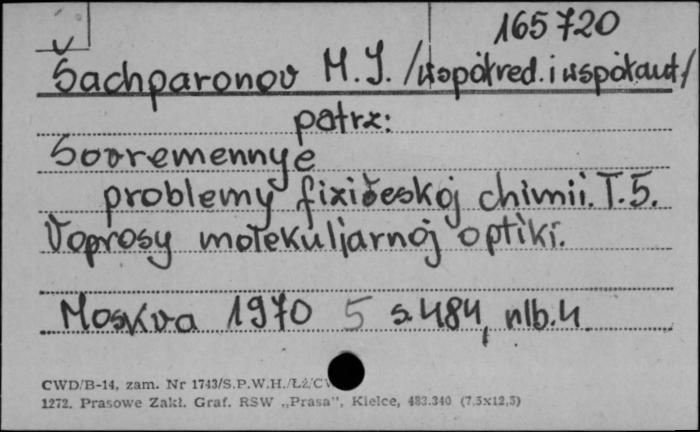 165720
Šachparonov M.J. /współred. i współaut/
patrz:
Sovremennye
problemy fizičeskoj chimii. T.5.
Voprosy molekuljarnoj optiki.
Moskva 1970 5 s. 484, nlb. 4
CWD/B-14, zam. Nr 1743/S.P.W.H./Łż/CW
1272. Prasowe Zakł. Graf. RSW „Prasa”, Kielce, 483.340 (7,5x12,5)